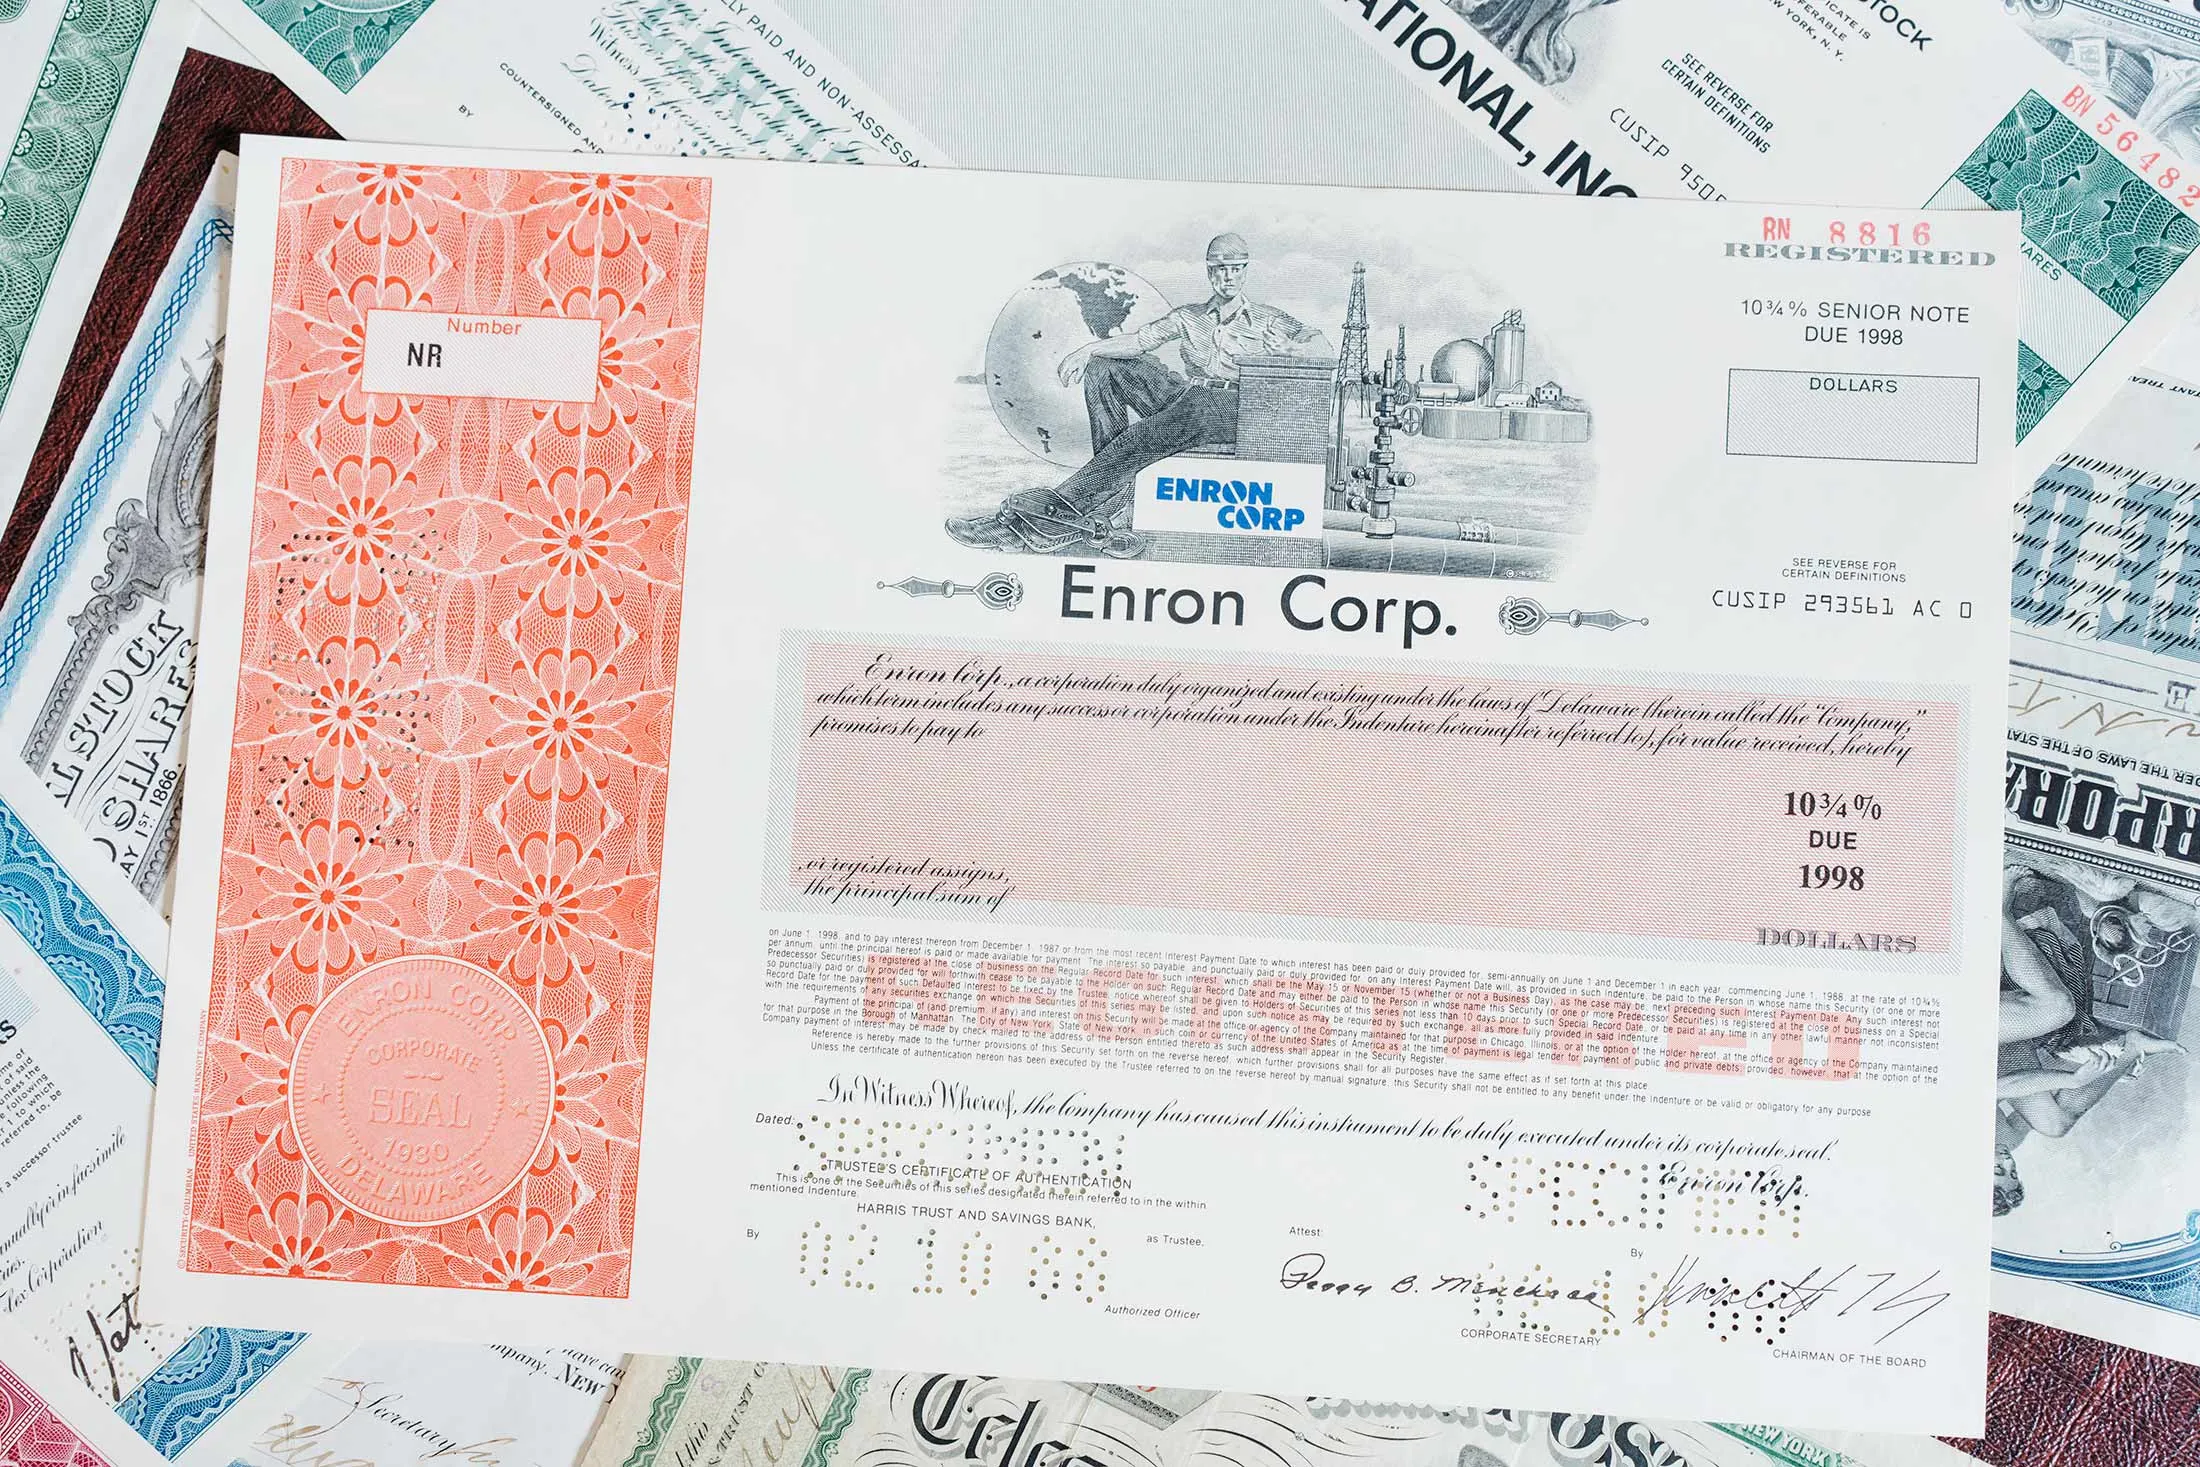 LLY PAID AND NON-ASSESSA
COUNTERSIGNED AND
BY
Dated
ATIONAL, INC
STOCK
NEW YORK, N. Y.
SEE REVERSE FOR
CERTAIN DEFINITIONS
CUSIP 950
BN 56482
ARES
RN 8816
REGISTERED
10¾% SENIOR NOTE
DUE 1998
DOLLARS
Number
NR
ENRON
CORP
SEE REVERSE FOR
CERTAIN DEFINITIONS
CUSIP 293561 AC 0
Enron Corp.
Enron Corp., a corporation duly organized and existing under the laws of Delaware (herein called the "Company,"
which term includes any successor corporation under the Indenture hereinafter referred to), for value received, hereby
promises to pay to
10¾%
DUE
1998
, or registered assigns,
the principal sum of
DOLLARS
on June 1, 1998, and to pay interest thereon from December 1, 1987 or from the most recent Interest Payment Date to which interest has been paid or duly provided for, semi-annually on June 1 and December 1 in each year, commencing June 1, 1988, at the rate of 10¾%
per annum, until the principal hereof is paid or made available for payment. The interest so payable, and punctually paid or duly provided for, on any Interest Payment Date will, as provided in such Indenture, be paid to the Person in whose name this Security (or one or more
Predecessor Securities) is registered at the close of business on the Regular Record Date for such interest, which shall be the May 15 or November 15 (whether or not a Business Day), as the case may be, next preceding such Interest Payment Date. Any such interest not
so punctually paid or duly provided for will forthwith cease to be payable to the Holder on such Regular Record Date and may either be paid to the Person in whose name this Security (or one or more Predecessor Securities) is registered at the close of business on a Special
Record Date for the payment of such Defaulted Interest to be fixed by the Trustee, notice whereof shall be given to Holders of Securities of this series not less than 10 days prior to such Special Record Date, or be paid at any time in any other lawful manner not inconsistent
with the requirements of any securities exchange on which the Securities of this series may be listed, and upon such notice as may be required by such exchange, all as more fully provided in said Indenture.
Payment of the principal of (and premium, if any) and interest on this Security will be made at the office or agency of the Company maintained for that purpose in Chicago, Illinois, or at the option of the Holder hereof, at the office or agency of the Company maintained
for that purpose in the Borough of Manhattan, The City of New York, State of New York, in such coin or currency of the United States of America as at the time of payment is legal tender for payment of public and private debts; provided, however, that at the option of the
Company payment of interest may be made by check mailed to the address of the Person entitled thereto as such address shall appear in the Security Register.
Reference is hereby made to the further provisions of this Security set forth on the reverse hereof, which further provisions shall for all purposes have the same effect as if set forth at this place.
Unless the certificate of authentication hereon has been executed by the Trustee referred to on the reverse hereof by manual signature, this Security shall not be entitled to any benefit under the Indenture or be valid or obligatory for any purpose
In Witness Whereof, the Company has caused this instrument to be duly executed under its corporate seal.
Dated:
SPECIMEN
TRUSTEE'S CERTIFICATE OF AUTHENTICATION
This is one of the Securities of this series designated therein referred to in the within
mentioned Indenture.
HARRIS TRUST AND SAVINGS BANK,
as Trustee,
By
02 10 88
Authorized Officer
SPECIMEN
Enron Corp.
Attest:
By
Peggy B. Menchaca
CORPORATE SECRETARY
CHAIRMAN OF THE BOARD
ENRON CORP
CORPORATE
SEAL
1930
DELAWARE
© SECURITY-COLUMBIAN UNITED STATES BANKNOTE COMPANY
L STOCK
SHARE
AY 1ST 1866
a successor trustee
Secretary
NEW
NEW YORK